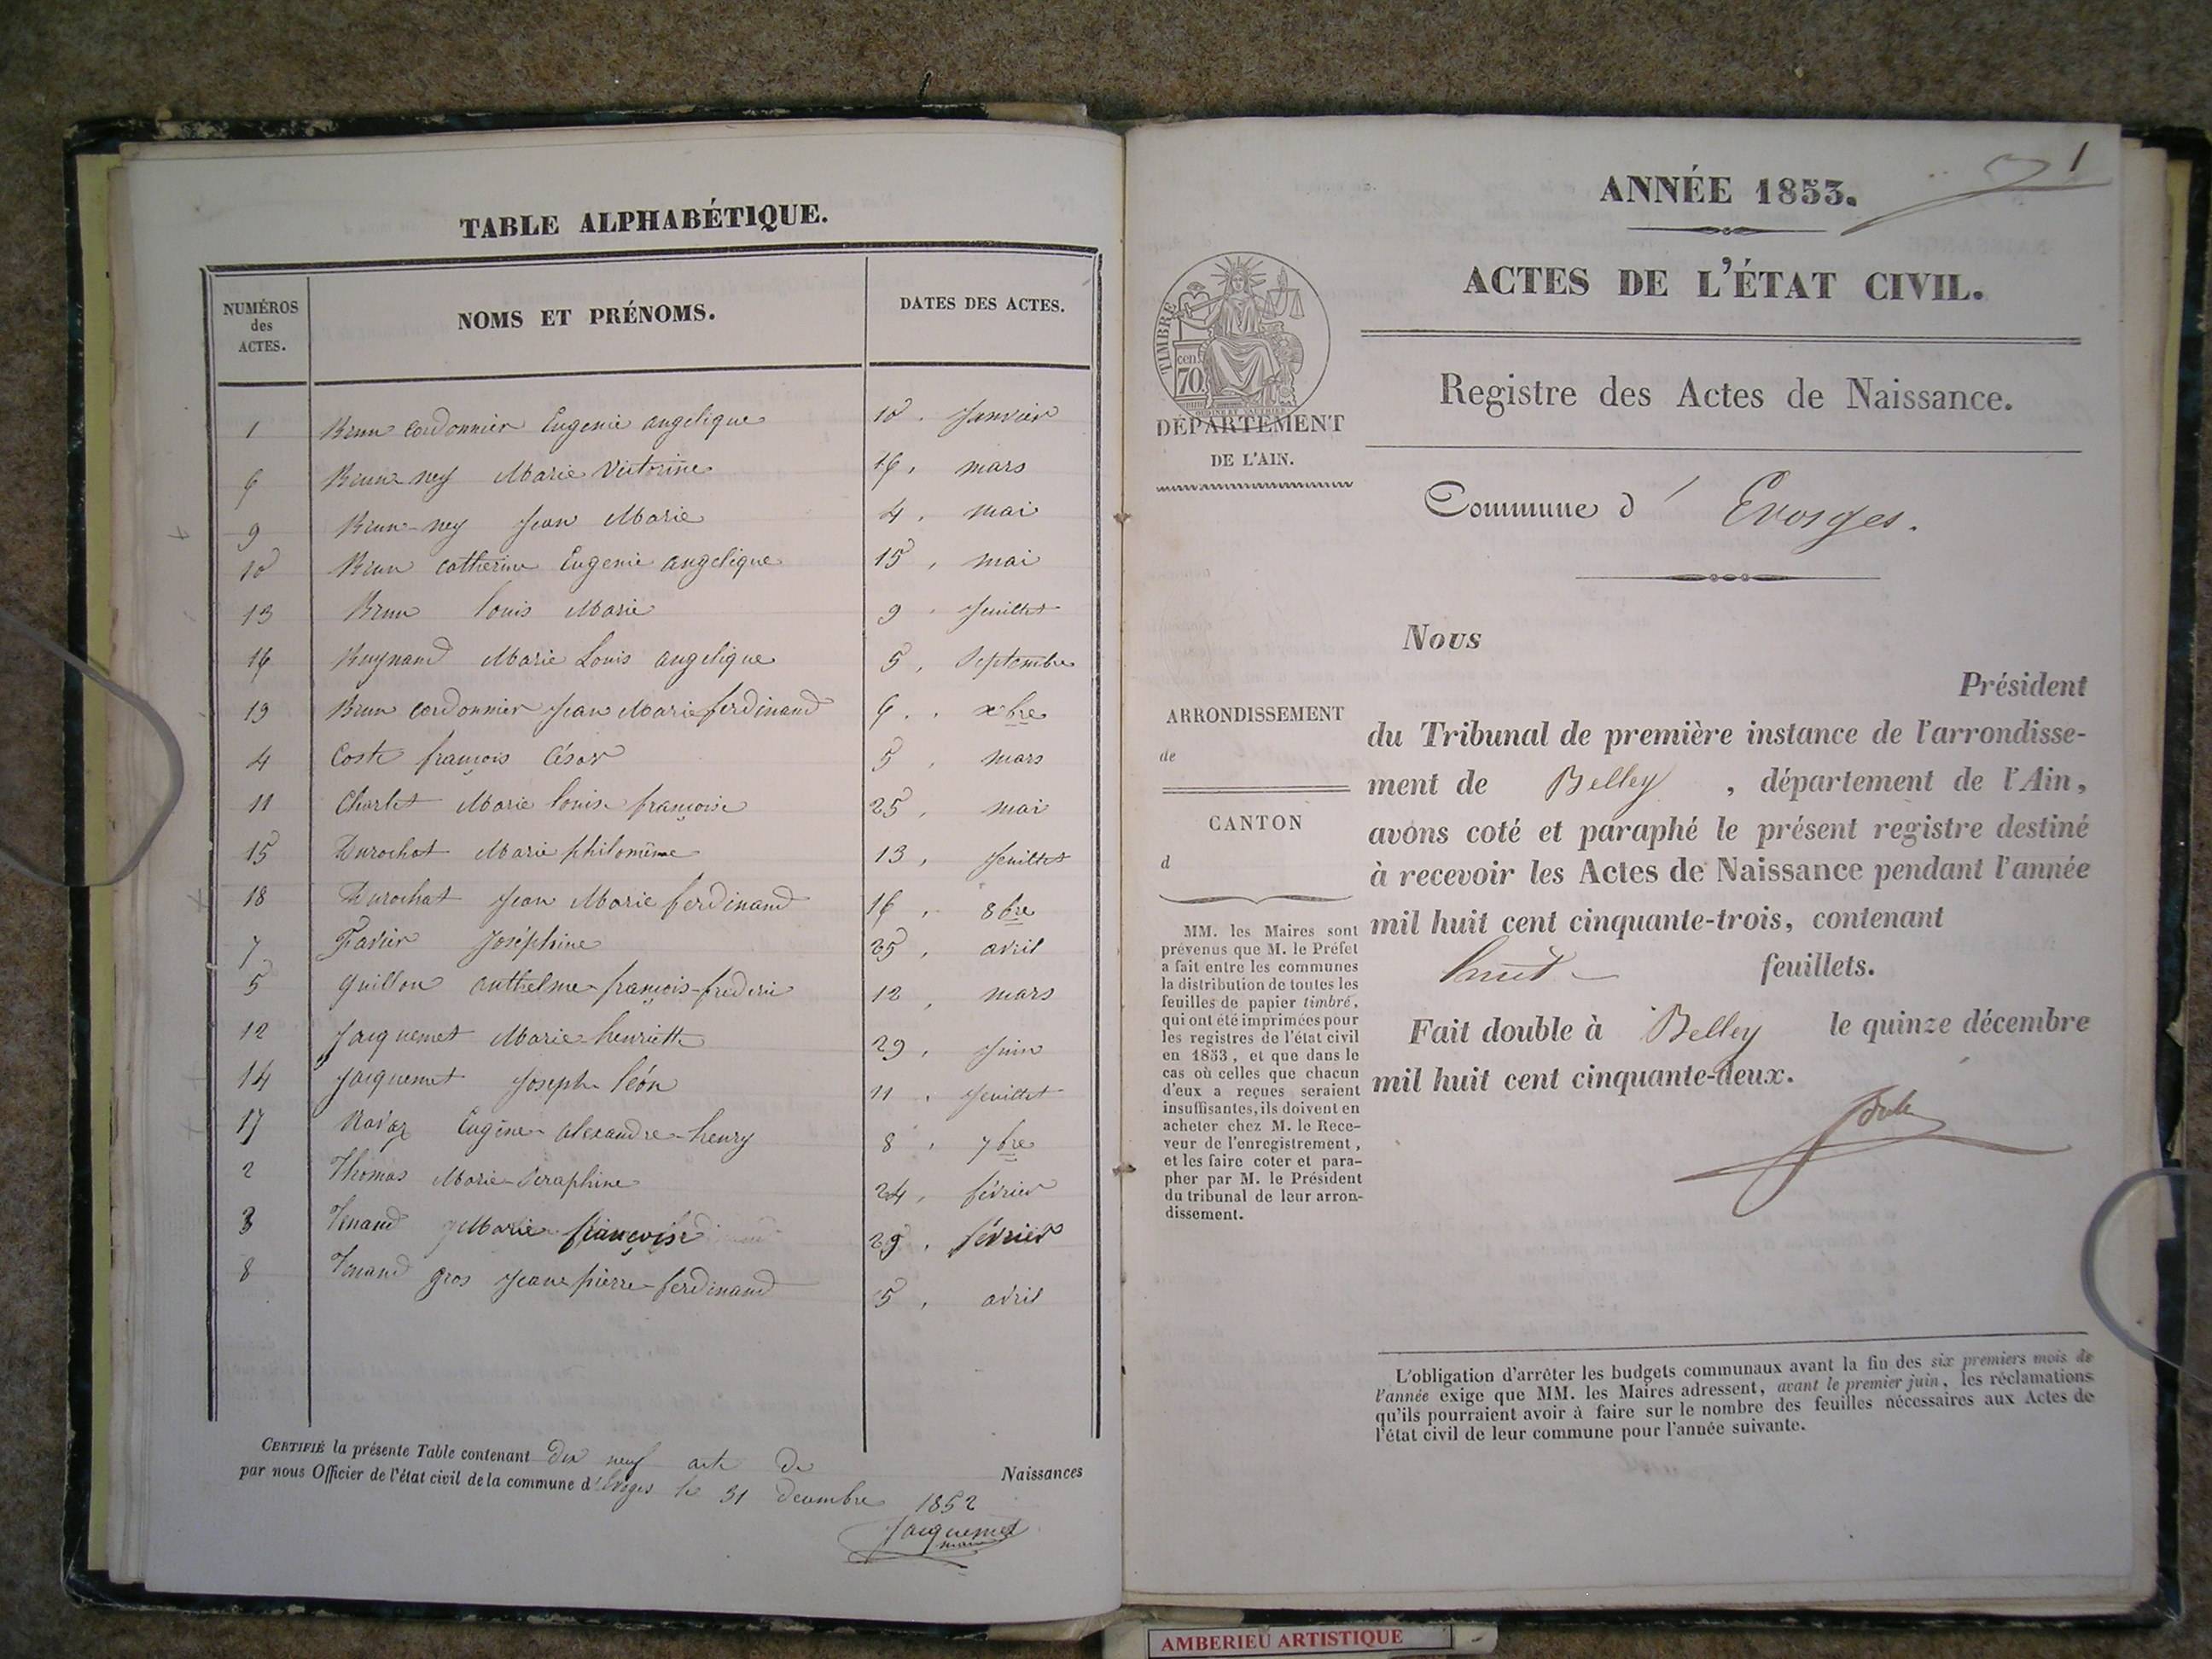 TABLE ALPHABÉTIQUE.
NUMÉROS des ACTES. NOMS ET PRÉNOMS. DATES DES ACTES.
1 Brun cordonnier Eugenie angelique 10 . Janvier
6 Brun-ney Marie Victorine 16 , mars
9 Brun-ney Jean Marie 4 , mai
10 Brun catherine Eugenie angelique 15 , mai
13 Brun louis Marie 9 , Jeuillet
16 Buynand Marie Louis angelique 5 , Septembre
19 Brun cordonnier Jean Marie ferdinand 6 . , xbre
4 Coste françois César 5 , mars
11 Charlet Marie louise françoise 25 , mai
15 Durochat Marie philomène 13 , Jeuillet
18 Durochat Jean Marie ferdinand 16 , 8bre
7 Favier Joséphine 25 , avril
5 guillon anthelme-françois-frederic 12 , mars
12 Jacquemet Marie-henriette 29 , Juin
14 Jacquemet Joseph léon 11 , Jeuillet
17 Eugène-alexandre-henry 8 , 7bre
2 Thomas Marie-Seraphine 24 , février
3 Tenand Marie françoise 29 , février
8 Tenand gros Jean-pierre-ferdinand 5 , avril
CERTIFIÉ la présente Table contenant dix neuf acte de Naissances
par nous Officier de l'état civil de la commune d'Evoges le 31 decembre 1852
Jacquemet
maire
1
ANNÉE 1853.
ACTES DE L'ÉTAT CIVIL.
TIMBRE
cen.
70
DÉPARTEMENT
DE L'AIN.
Registre des Actes de Naissance.
Commune d' Evosges.
ARRONDISSEMENT
de
CANTON
d
MM. les Maires sont
prévenus que M. le Préfet
a fait entre les communes
la distribution de toutes les
feuilles de papier timbré,
qui ont été imprimées pour
les registres de l'état civil
en 1853, et que dans le
cas où celles que chacun
d'eux a reçues seraient
insuffisantes, ils doivent en
acheter chez M. le Rece-
veur de l'enregistrement,
et les faire coter et para-
pher par M. le Président
du tribunal de leur arron-
dissement.
Nous
Président
du Tribunal de première instance de l'arrondisse-
ment de Belley , département de l'Ain,
avons coté et paraphé le présent registre destiné
à recevoir les Actes de Naissance pendant l'année
mil huit cent cinquante-trois, contenant
huit feuillets.
Fait double à Belley le quinze décembre
mil huit cent cinquante-deux.
L'obligation d'arrêter les budgets communaux avant la fin des six premiers mois de
l'année exige que MM. les Maires adressent, avant le premier juin, les réclamations
qu'ils pourraient avoir à faire sur le nombre des feuilles nécessaires aux Actes de
l'état civil de leur commune pour l'année suivante.
AMBERIEU ARTISTIQUE